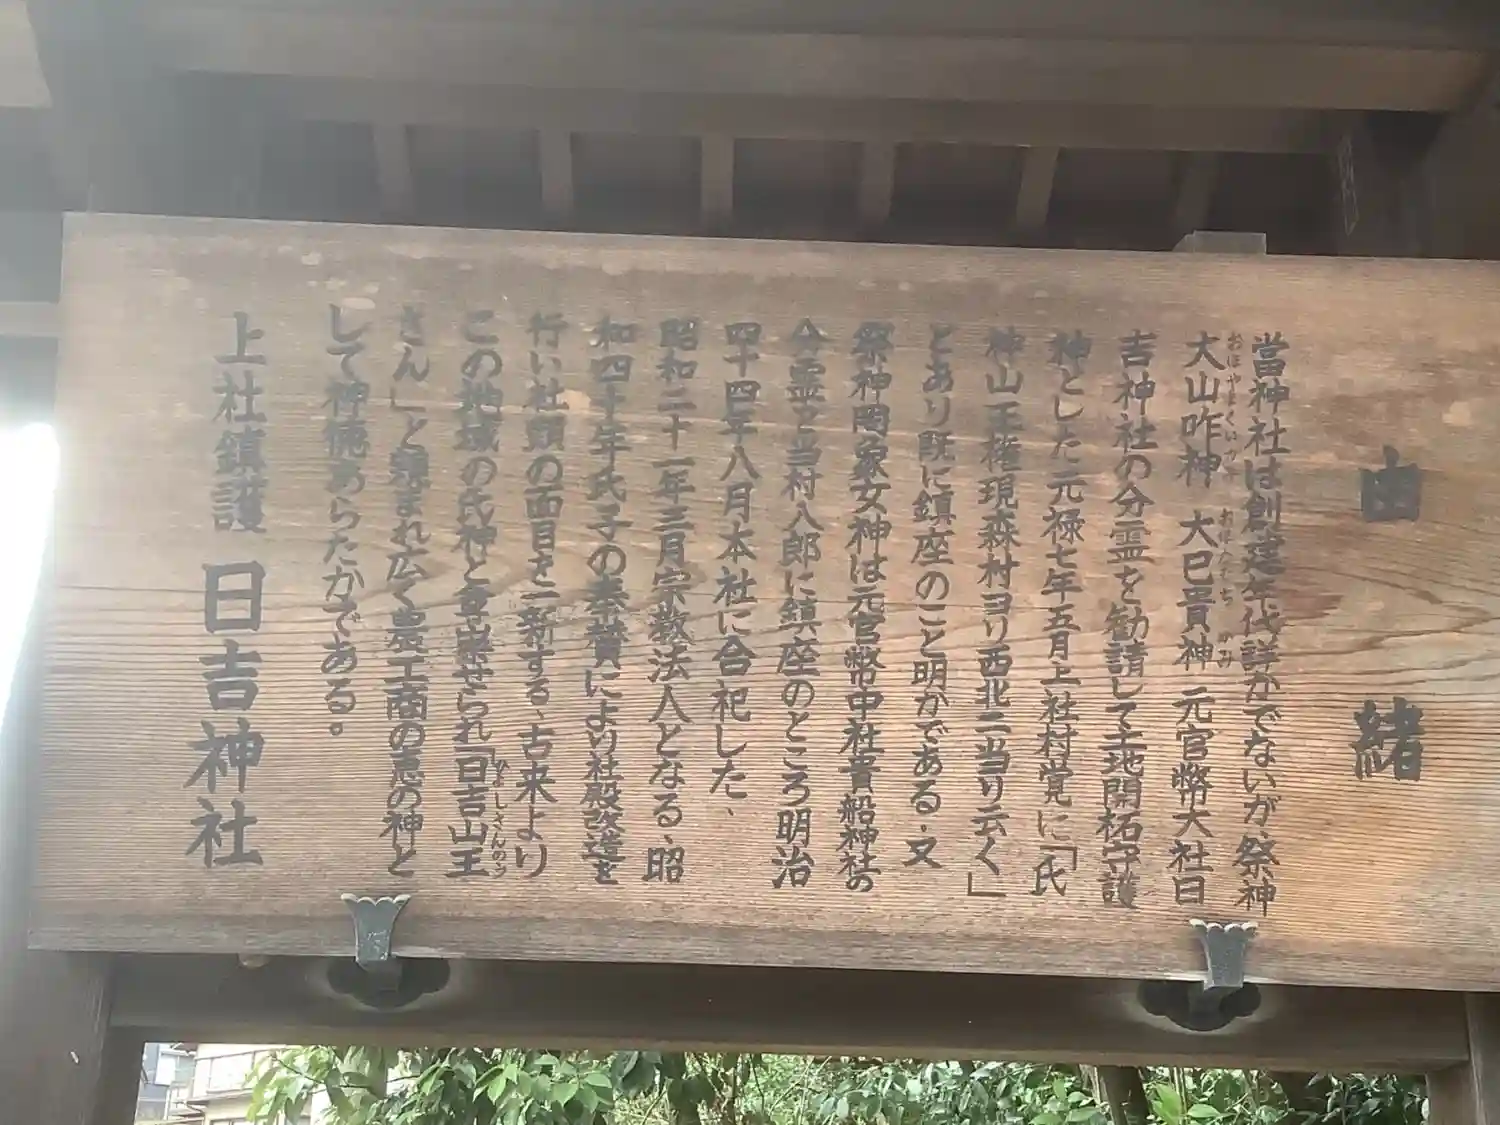 由緒
當神社は創建年代詳かでないが、祭神
大山咋神 大巳貴神 元官幣大社日
おほやまくいかみ おほなむち かみ
吉神社の分霊を勧請して土地開柘守護
神とした元禄七年五月上社村覚に「氏
神山王権現森村ヨリ西北ニ当り云く」
とあり既に鎮座のこと明かである、又
祭神岡象女神は元官幣中社貴船神社の
分霊で当村八郎に鎮座のところ明治
四十四年八月本社に合祀した、
昭和二十一年三月宗教法人となる、昭
和四十年氏子の奉賛により社殿改造を
行い社頭の面目を一新する、古来より
この地域の氏神と尊崇せられ「日吉山王
ひよしさんのう
さん」と親まれ広く農工商の恵の神と
して神徳あらたかである。
上社鎮護 日吉神社